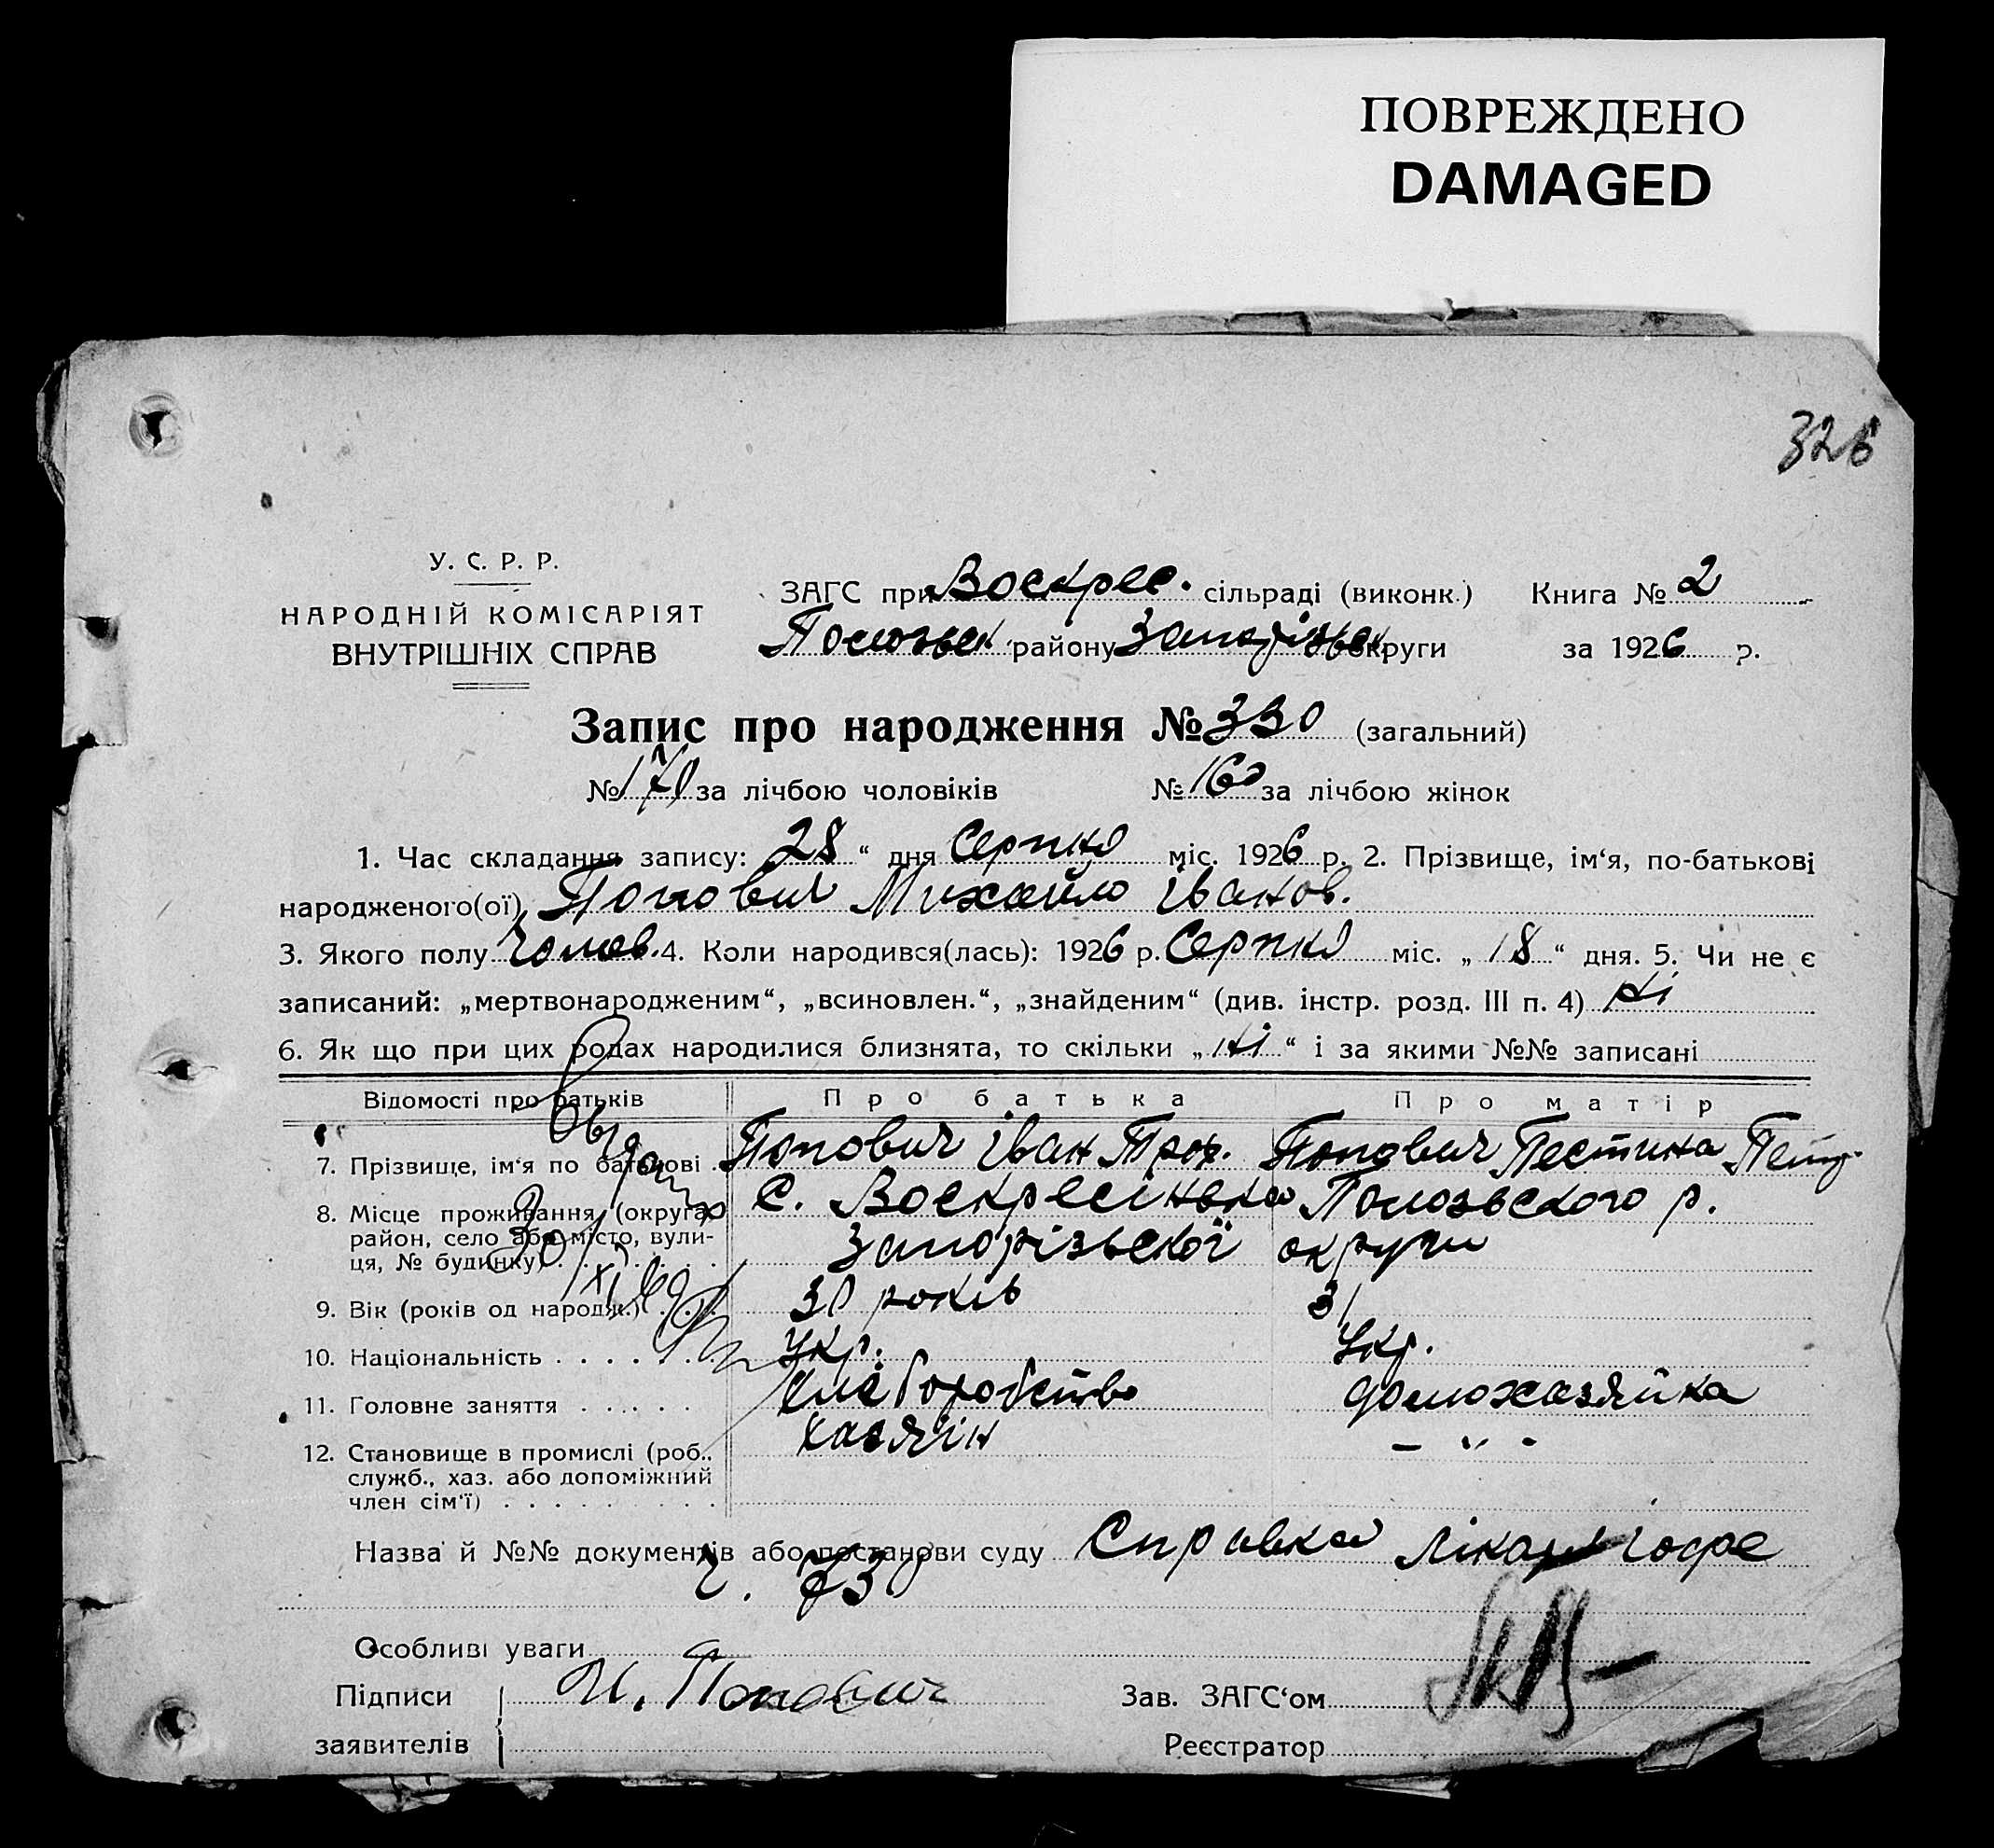 ПОВРЕЖДЕНО
DAMAGED
326
У. С. Р. Р.
НАРОДНІЙ КОМІСАРІЯТ
ВНУТРІШНІХ СПРАВ
ЗАГС при Воскрес. сільраді (виконк.) Книга № 2
Пологівськ району Запорізьк округи за 1926 р.
Запис про народження № 330 (загальний)
№ 170 за лічбою чоловіків № 160 за лічбою жінок
1. Час складання запису: 28 “ дня Серпня міс. 1926 р. 2. Прізвище, ім‘я, по-батькові
народженого(ої) Попович Михайло Іванов.
3. Якого полу Чолов. 4. Коли народився(лась): 1926 р. Серпня міс. „ 18 “ дня. 5. Чи не є
записаний: „мертвонародженим“, „всиновлен.“, „знайденим“ (див. інстр. розд. III п. 4) ні
6. Як що при цих родах народилися близнята, то скільки „ ні “ і за якими №№ записані
Відомості про батьків Про батька Про матір
7. Прізвище, ім‘я по батькові Попович Іван Попович Пестина Петр.
8. Місце проживання (округа, с. Воскресінька
район, село або місто, вули- Запорізької округи
ця, № будинку)
9. Вік (років од народж.) 30 років 31
10. Національність Укр. Укр.
11. Головне заняття домохазяйка
12. Становище в промислі (роб., хазяїн — „ -
служб., хаз. або допоміжний
член сім‘ї)
Назва й №№ документів або постанови суду Справка
ч. 73
Особливі уваги
Підписи И. Попович Зав. ЗАГС‘ом
заявителів Реєстратор